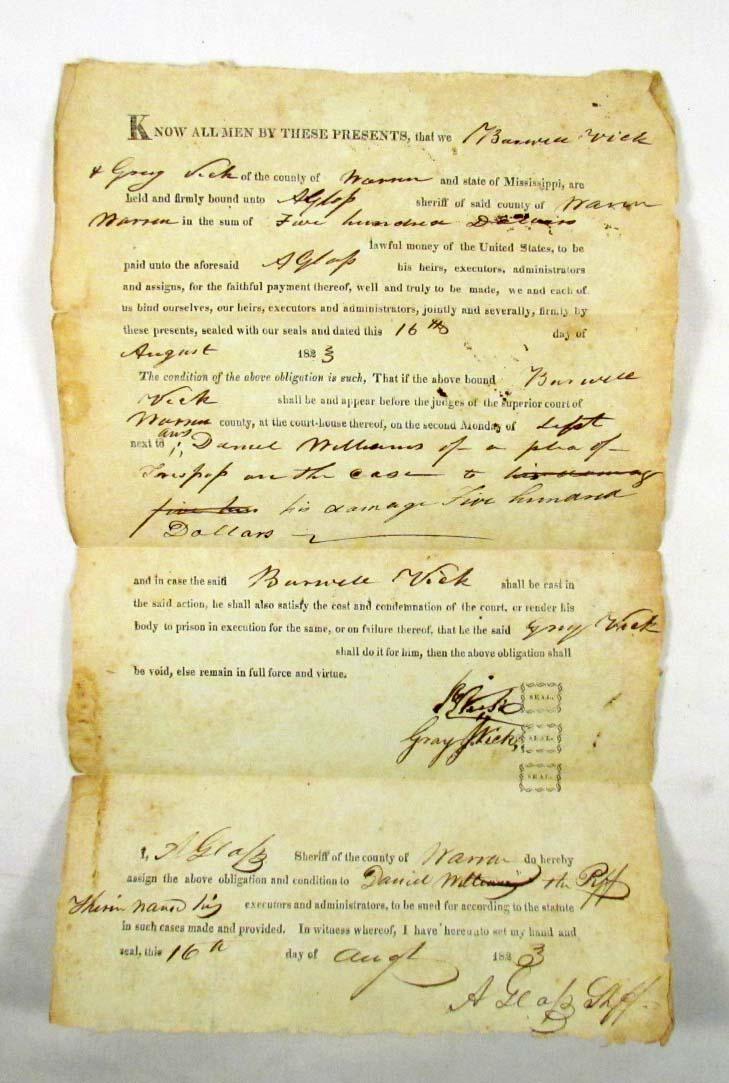 KNOW ALL MEN BY THESE PRESENTS, that we Burwell Vick
& Gray Vick of the county of Warren and state of Mississippi, are
held and firmly bound unto A Glass sheriff of said county of Warren
Warren in the sum of Five hundred Dollars
lawful money of the United States, to be
paid unto the aforesaid A Glass his heirs, executors, administrators
and assigns, for the faithful payment thereof, well and truly to be made, we and each of
us bind ourselves, our heirs, executors and administrators, jointly and severally, firmly by
these presents, sealed with our seals and dated this 16th day of
August 1823
The condition of the above obligation is such, That if the above bound Burwell
Vick shall be and appear before the judges of the superior court of
Warren county, at the court-house thereof, on the second Monday of Sept
next to ans Daniel Williams of a plea of
Trespass on the case to his damage
five hun his damage Five hundred
Dollars
and in case the said Burwell Vick shall be cast in
the said action, he shall also satisfy the cost and condemnation of the court, or render his
body to prison in execution for the same, or on failure thereof, that he the said Gray Vick
shall do it for him, then the above obligation shall
be void, else remain in full force and virtue.
B Vick SEAL.
Gray Vick SEAL.
SEAL.
I, A Glass Sheriff of the county of Warren do hereby
assign the above obligation and condition to Daniel Williams the Plff
therein named his executors and administrators, to be sued for according to the statute
in such cases made and provided. In witness whereof, I have hereunto set my hand and
seal, this 16th day of Augt 1823
A Glass Shff